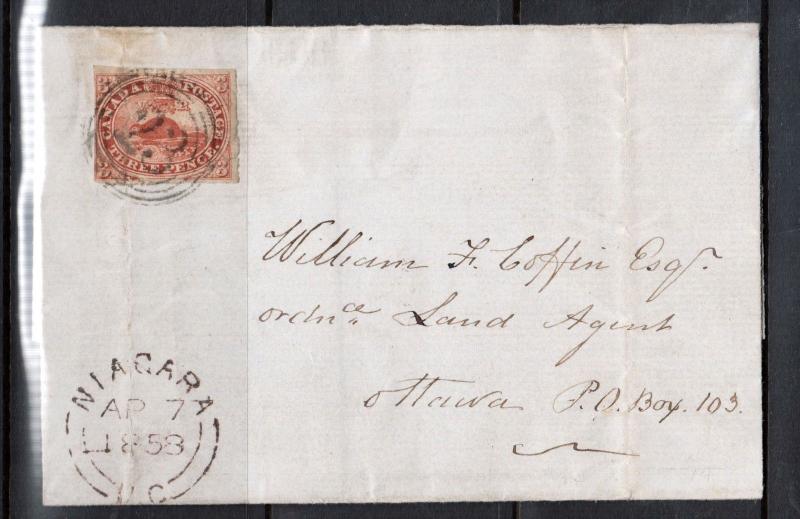 3 CANADA POSTAGE 3
3 THREE PENCE. 3
William F. Coffin Esqr.
ordnce Land Agent
Ottawa P.O. Box. 103.
NIAGARA
AP 7
1858
U.C